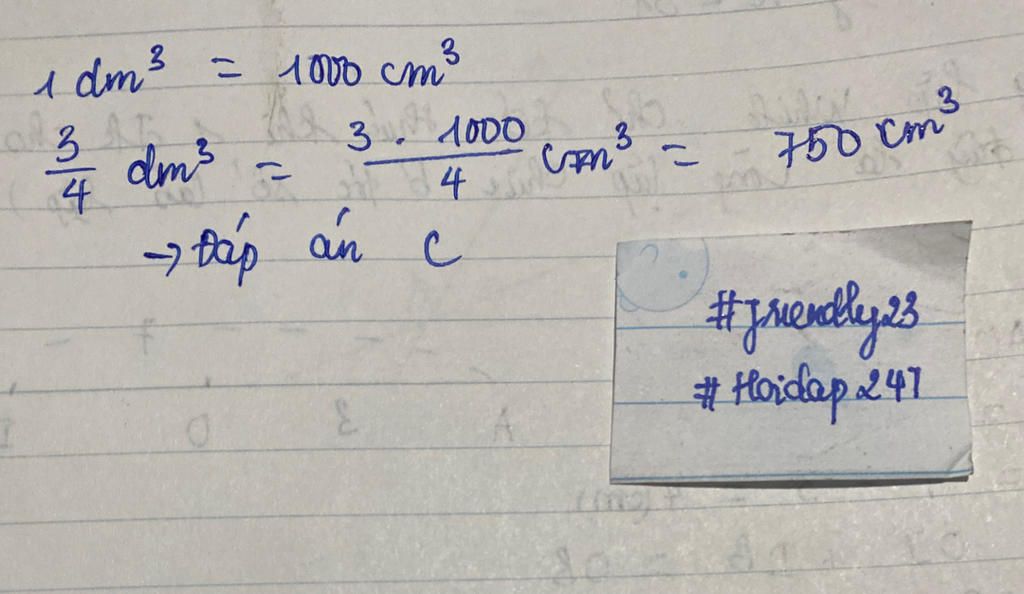 1 dm³ = 1000 cm³
3/4 dm³ = 3 . 1000 / 4 cm³ = 750 cm³
→ Đáp án C
#friendly23
#Hoidap247